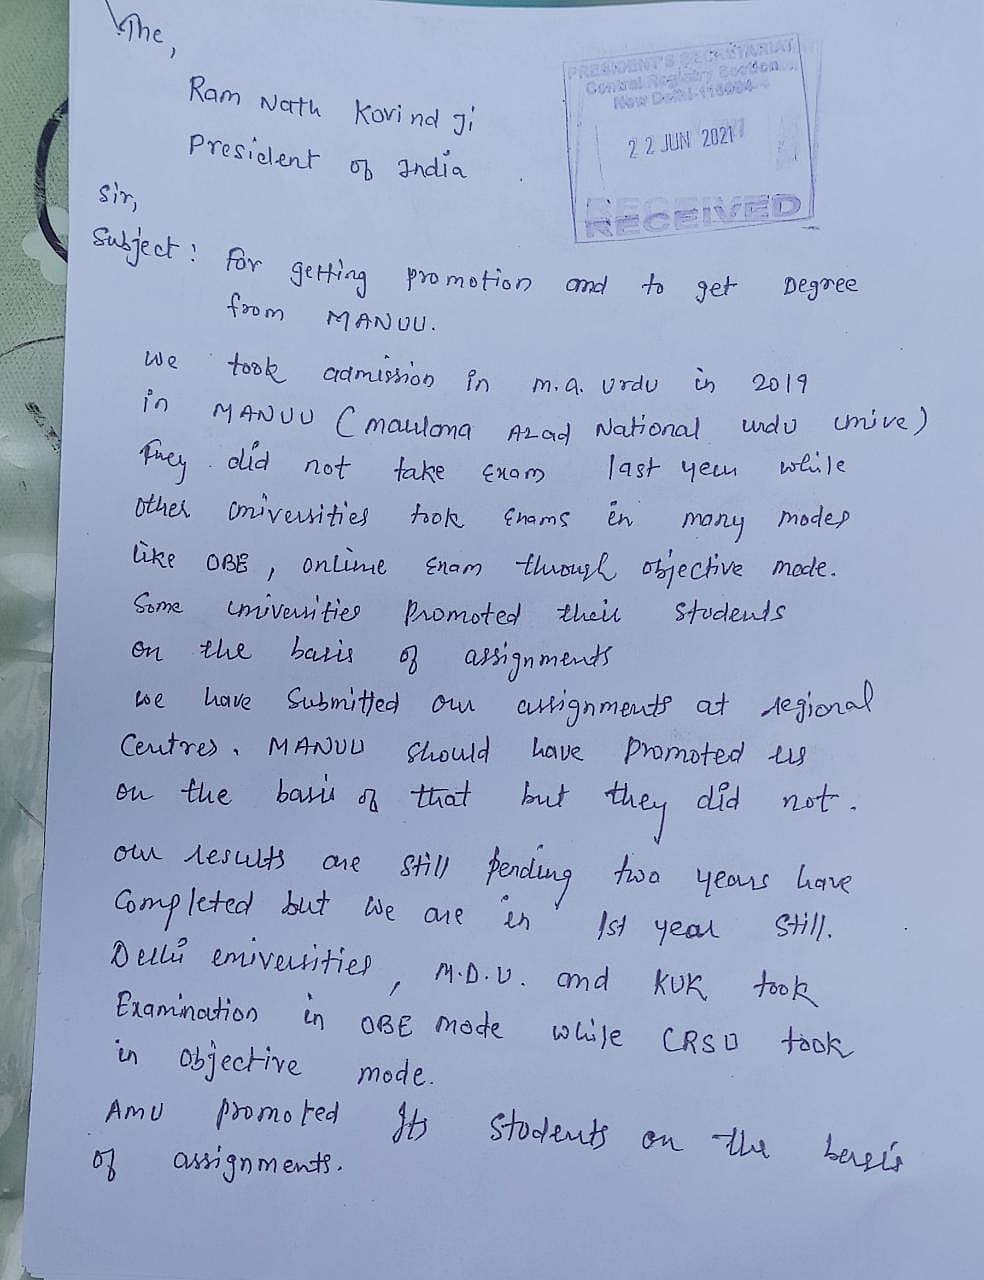 The,
PRESIDENT'S SECRETARIAT
Central Registry Section
New Delhi-110004
22 JUN 2021
RECEIVED
Ram Nath Kovind Ji
President of India
Sir,
Subject: For getting promotion and to get Degree
from MANUU.
We took admission in M.A. Urdu in 2019
in MANUU (Maulana Azad National Urdu Unive)
They did not take Exam last year while
Other Universities took Exams in many modes
like OBE, online Exam through objective mode.
Some Universities Promoted their Students
on the basis of assignments
We have Submitted our assignments at regional
Centres. MANUU Should have Promoted us
on the basis of that but they did not.
our results are Still Pending two years have
Completed but We are in 1st year Still.
Delhi Universities, M.D.U. and KUK took
Examination in OBE mode while CRSU took
in objective mode.
AMU promoted Its Students on the basis
of assignments.